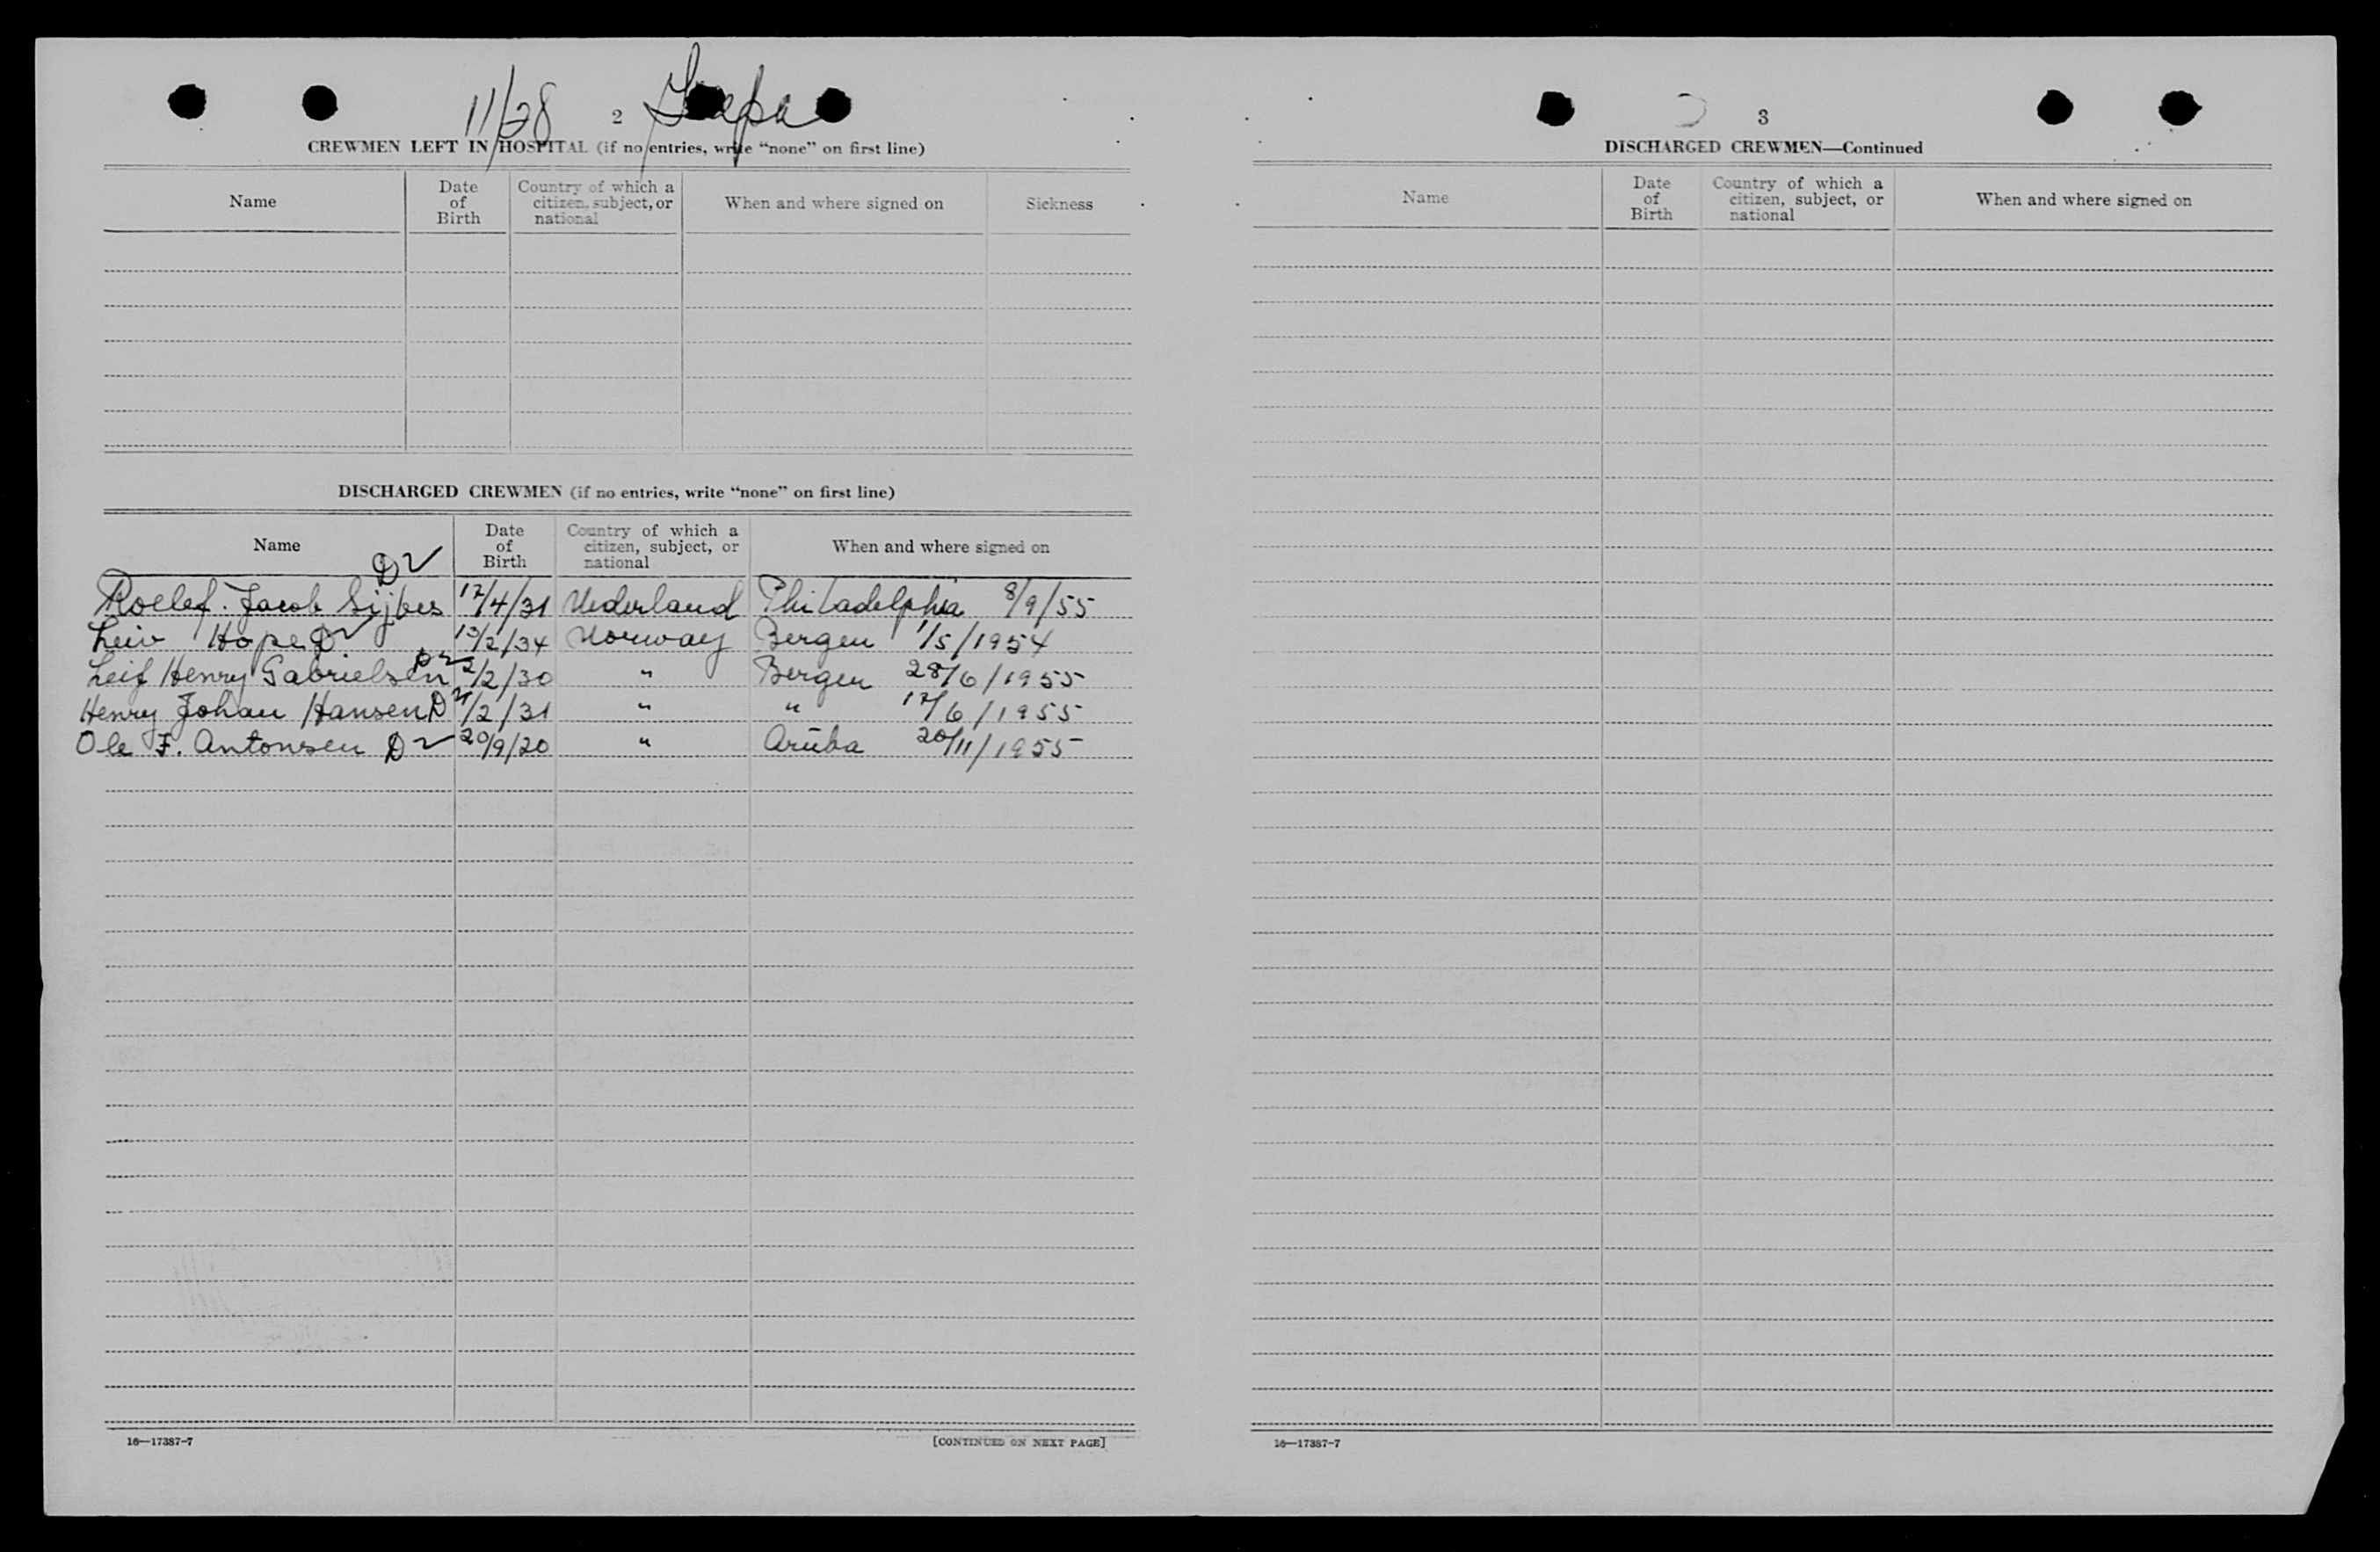 11/28
2
CREWMEN LEFT IN HOSPITAL (if no entries, write “none” on first line)
Name Date of Birth Country of which a citizen, subject, or national When and where signed on Sickness
DISCHARGED CREWMEN (if no entries, write “none” on first line)
Name Date of Birth Country of which a citizen, subject, or national When and where signed on
D✓
Roelef. Jacob Sijbes 17/4/31 Nederland Philadelphia 8/9/55
Leiv Hope D✓ 13/2/34 Norway Bergen 1/5/1954
Leif Henry Gabrielsen D✓ 2/2/30 " Bergen 28/6/1955
Henry Johan Hansen D 21/2/31 " " 17/6/1955
Ole F. Antonsen D✓ 20/9/20 " Arŭba 20/11/1955
16—17387-7 [CONTINUED ON NEXT PAGE]
3
DISCHARGED CREWMEN—Continued
Name Date of Birth Country of which a citizen, subject, or national When and where signed on
16—17387-7